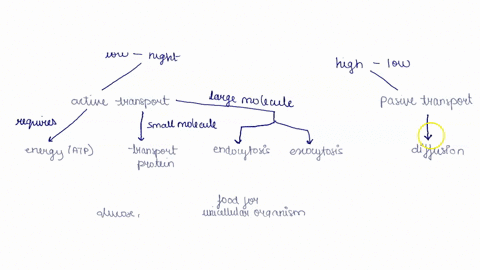 low - hight
high - low
active transport
large molecule
pasive transport
requires
small molecule
energy (ATP)
transport
protein
endocytosis
exocytosis
diffusion
food for
unicellular organism